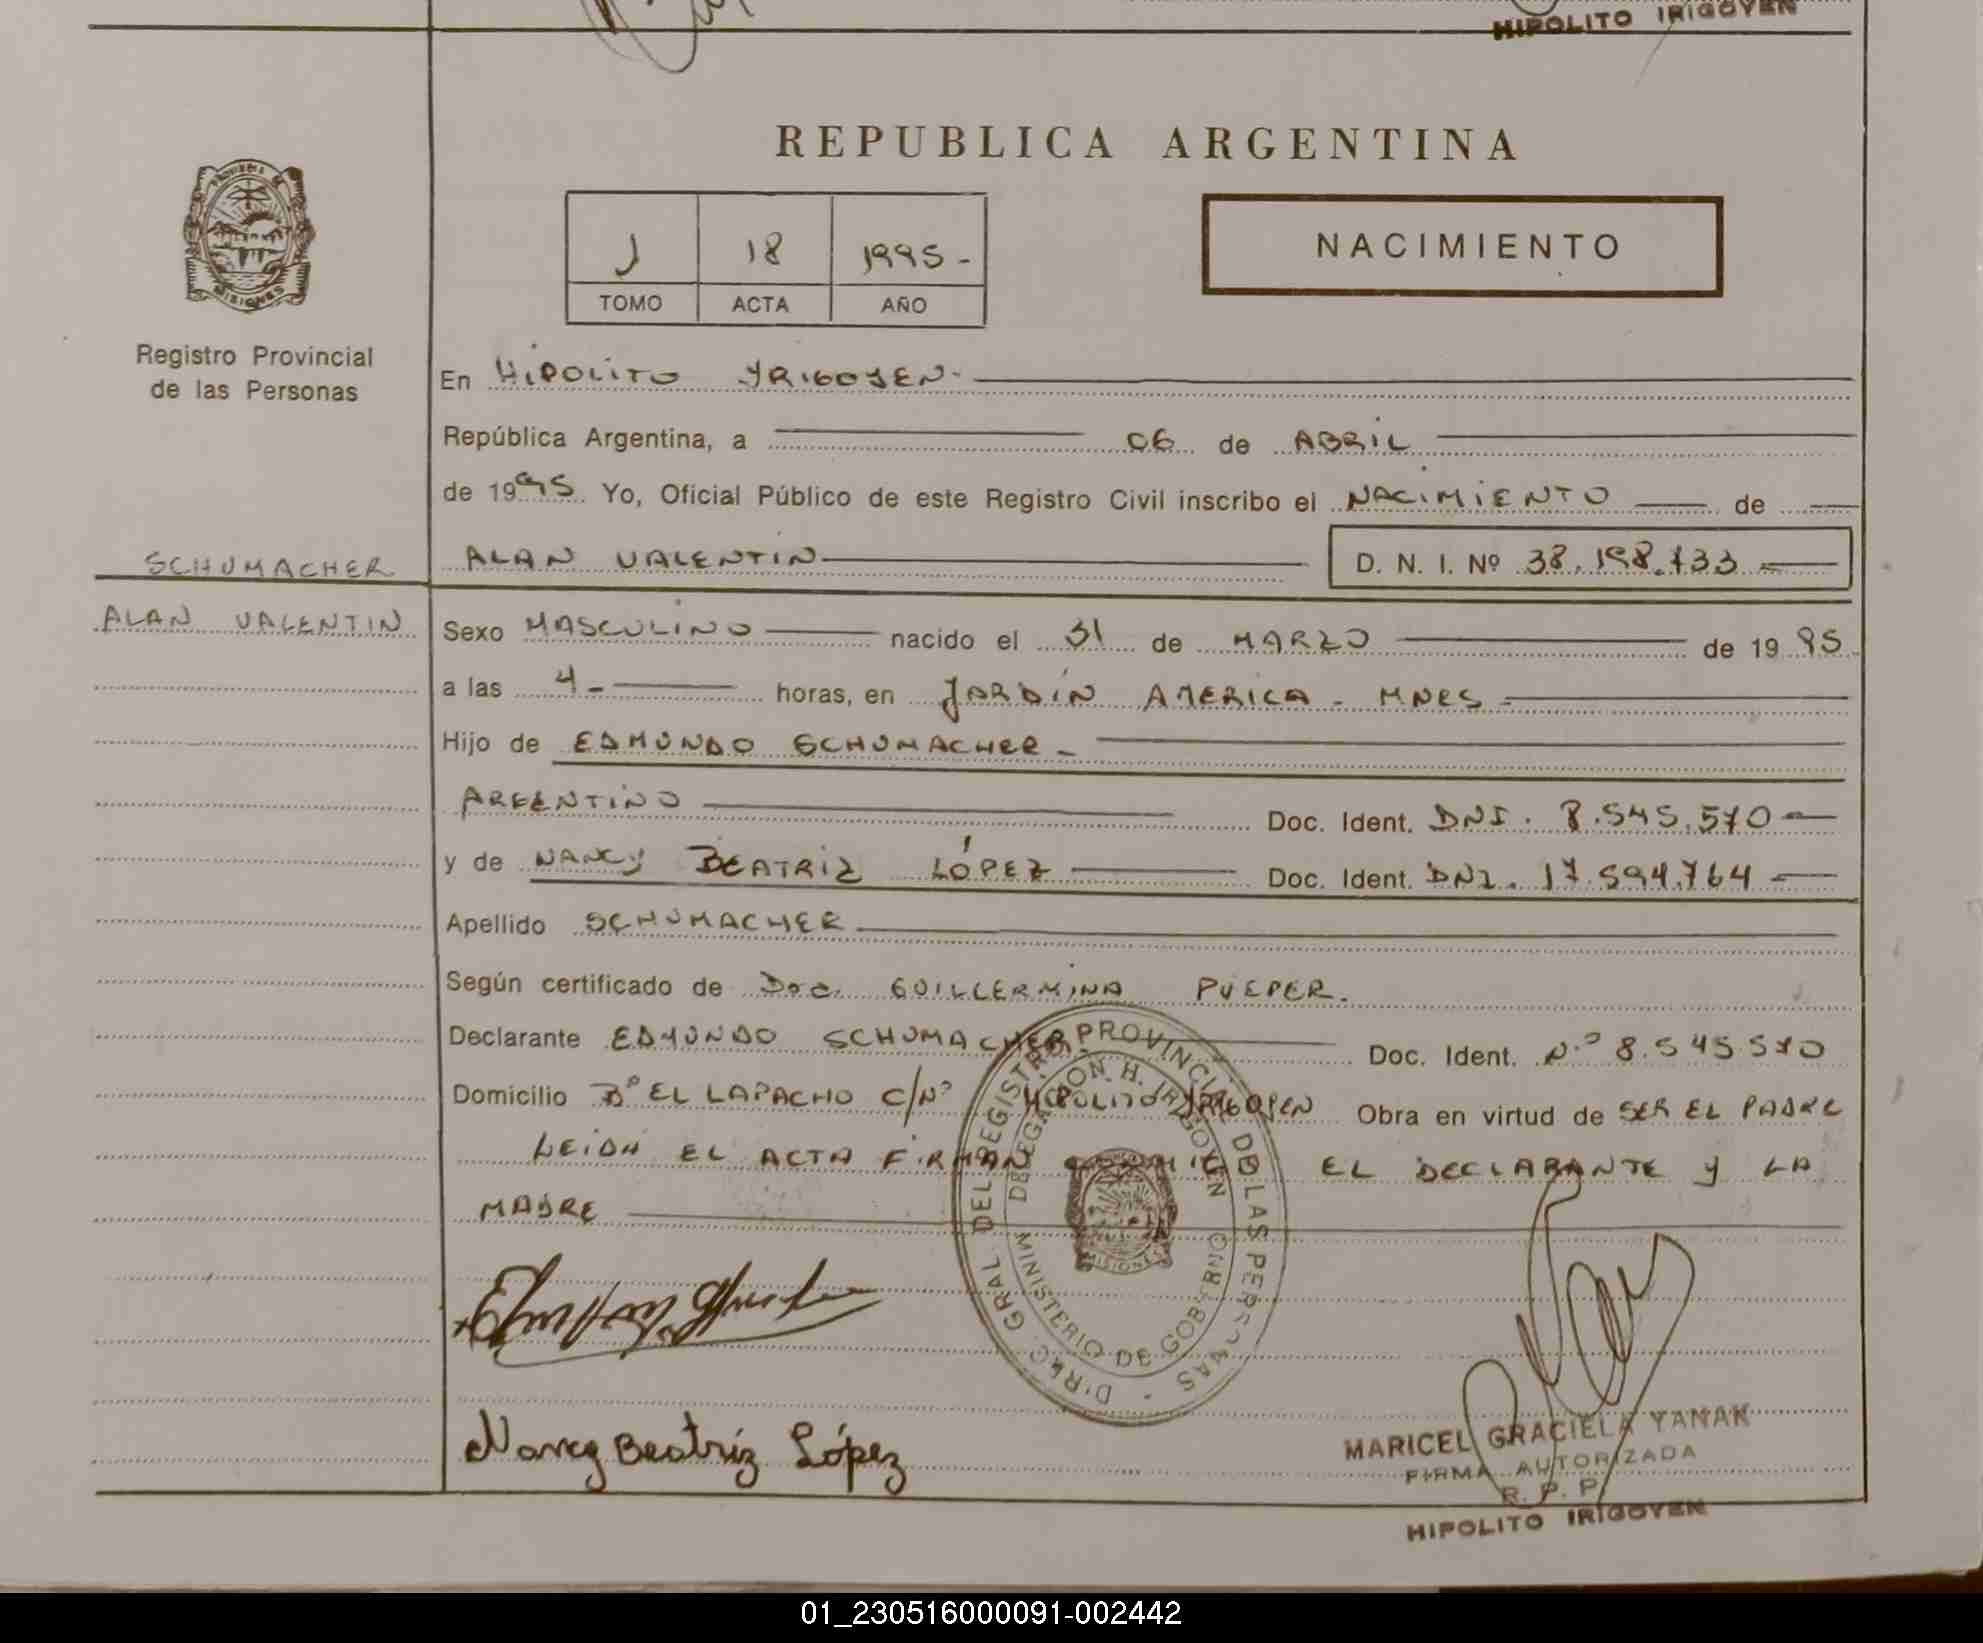 HIPOLITO IRIGOYEN
REPUBLICA ARGENTINA
MISIONES
Registro Provincial
de las Personas
J 18 1995-
TOMO ACTA AÑO
NACIMIENTO
En HIPOLITO YRIGOYEN-
República Argentina, a 06 de ABRIL
de 1995 Yo, Oficial Público de este Registro Civil inscribo el NACIMIENTO de
SCHUMACHER
ALAN VALENTIN
ALAN VALENTIN D. N. I. Nº 38.198.733
Sexo MASCULINO nacido el 31 de MARZO de 1995
a las 4- horas, en JARDIN AMERICA - MNES -
Hijo de EDMUNDO SCHUMACHER -
ARGENTINO Doc. Ident. DNI. 8.545.570
y de NANCY BEATRIZ LÓPEZ Doc. Ident. DNI. 17.594.764
Apellido SCHUMACHER
Según certificado de Doc. GUILLERMINA PUEPER.
Declarante EDMUNDO SCHUMACHER Doc. Ident. Nº 8.545.570
Domicilio Bº EL LAPACHO C/Nº HIPOLITO YRIGOYEN Obra en virtud de SER EL PADRE
LEIDA EL ACTA FIRMAN CONMIGO EL DECLARANTE Y LA
MADRE
DIREC. GRAL. DEL REGISTRO PROVINCIAL DE LAS PERSONAS
DELEGACION H. IRIGOYEN
MINISTERIO DE GOBIERNO
MISIONES
Nancy Beatriz López
MARICEL GRACIELA YANAK
FIRMA AUTORIZADA
R. P. P.
HIPOLITO IRIGOYEN
01_230516000091-002442